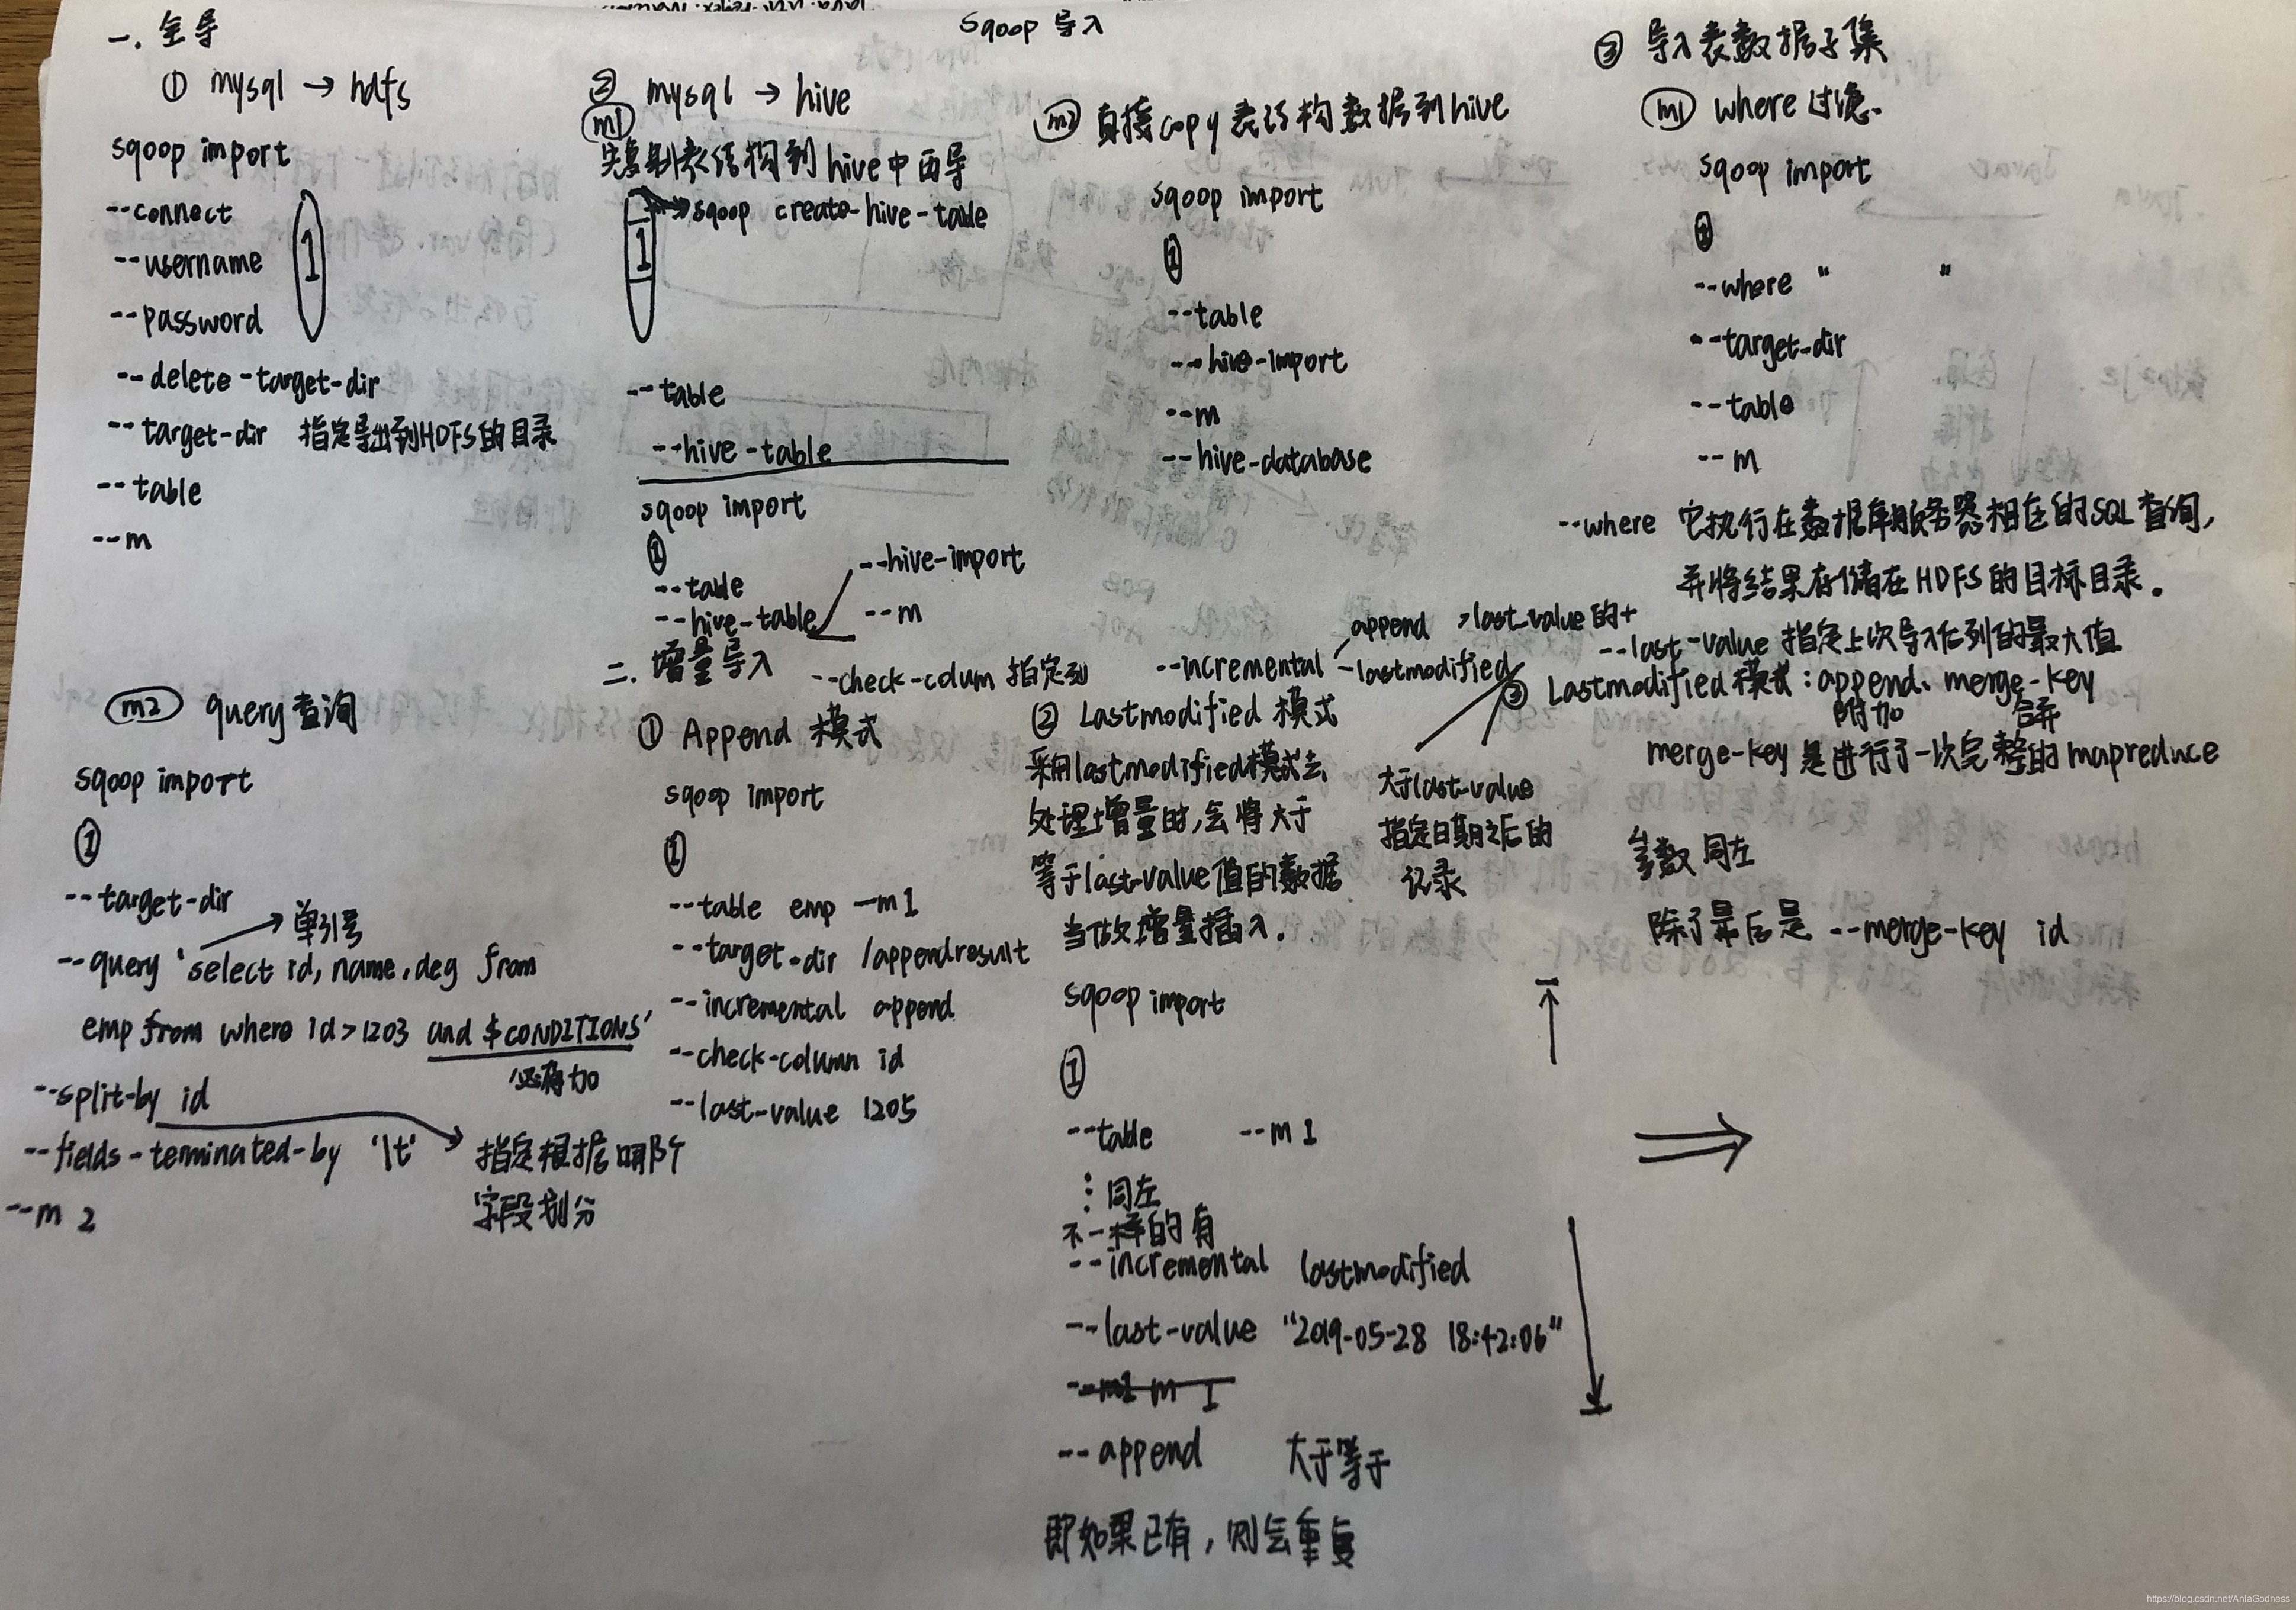 Sqoop 导入
一. 全导
① mysql → hdfs
sqoop import
--connect
--username
--password
1
--delete-target-dir
--target-dir 指定导出到HDFS的目录
--table
--m
② mysql → hive
m1
先复制表结构到hive中再导
sqoop create-hive-table
1
--table
--hive-table
sqoop import
①
--table
--hive-table
--hive-import
--m
m2 直接copy表结构数据到hive
sqoop import
①
--table
--hive-import
--m
--hive-database
③ 导入表数据子集
m1 where过滤.
sqoop import
①
--where " "
--target-dir
--table
--m
--where 它执行在数据库服务器相应的SQL查询,
并将结果存储在HDFS的目标目录.
m2 query查询
sqoop import
①
--target-dir
单引号
--query 'select id,name,deg from
emp from where id>1203 and $CONDITIONS'
必须加
--split-by id
--fields-terminated-by '\t'
指定根据哪个
字段划分
--m 2
二. 增量导入
--check-colum 指定列
--incremental
append >last_value的+
-lastmodified
--last-value 指定上次导入后列的最大值
大于last-value
指定日期之后的
记录
① Append 模式
sqoop import
①
--table emp —m 1
--target-dir /appendresult
--incremental append
--check-column id
--last-value 1205
② Lastmodified 模式
采用lastmodified模式去
处理增量时,会将大于
等于last-value值的数据
当做增量插入.
sqoop import
①
--table --m 1
⋮同左
不一样的有
--incremental lastmodified
--last-value "2019-05-28 18:42:06"
--append 大于等于
即如果已有,则会重复
③ Lastmodified 模式:append、merge-key
附加 合并
merge-key是进行了一次完整的mapreduce
参数同左
除了最后是 --merge-key id
https://blog.csdn.net/AnlaGodness